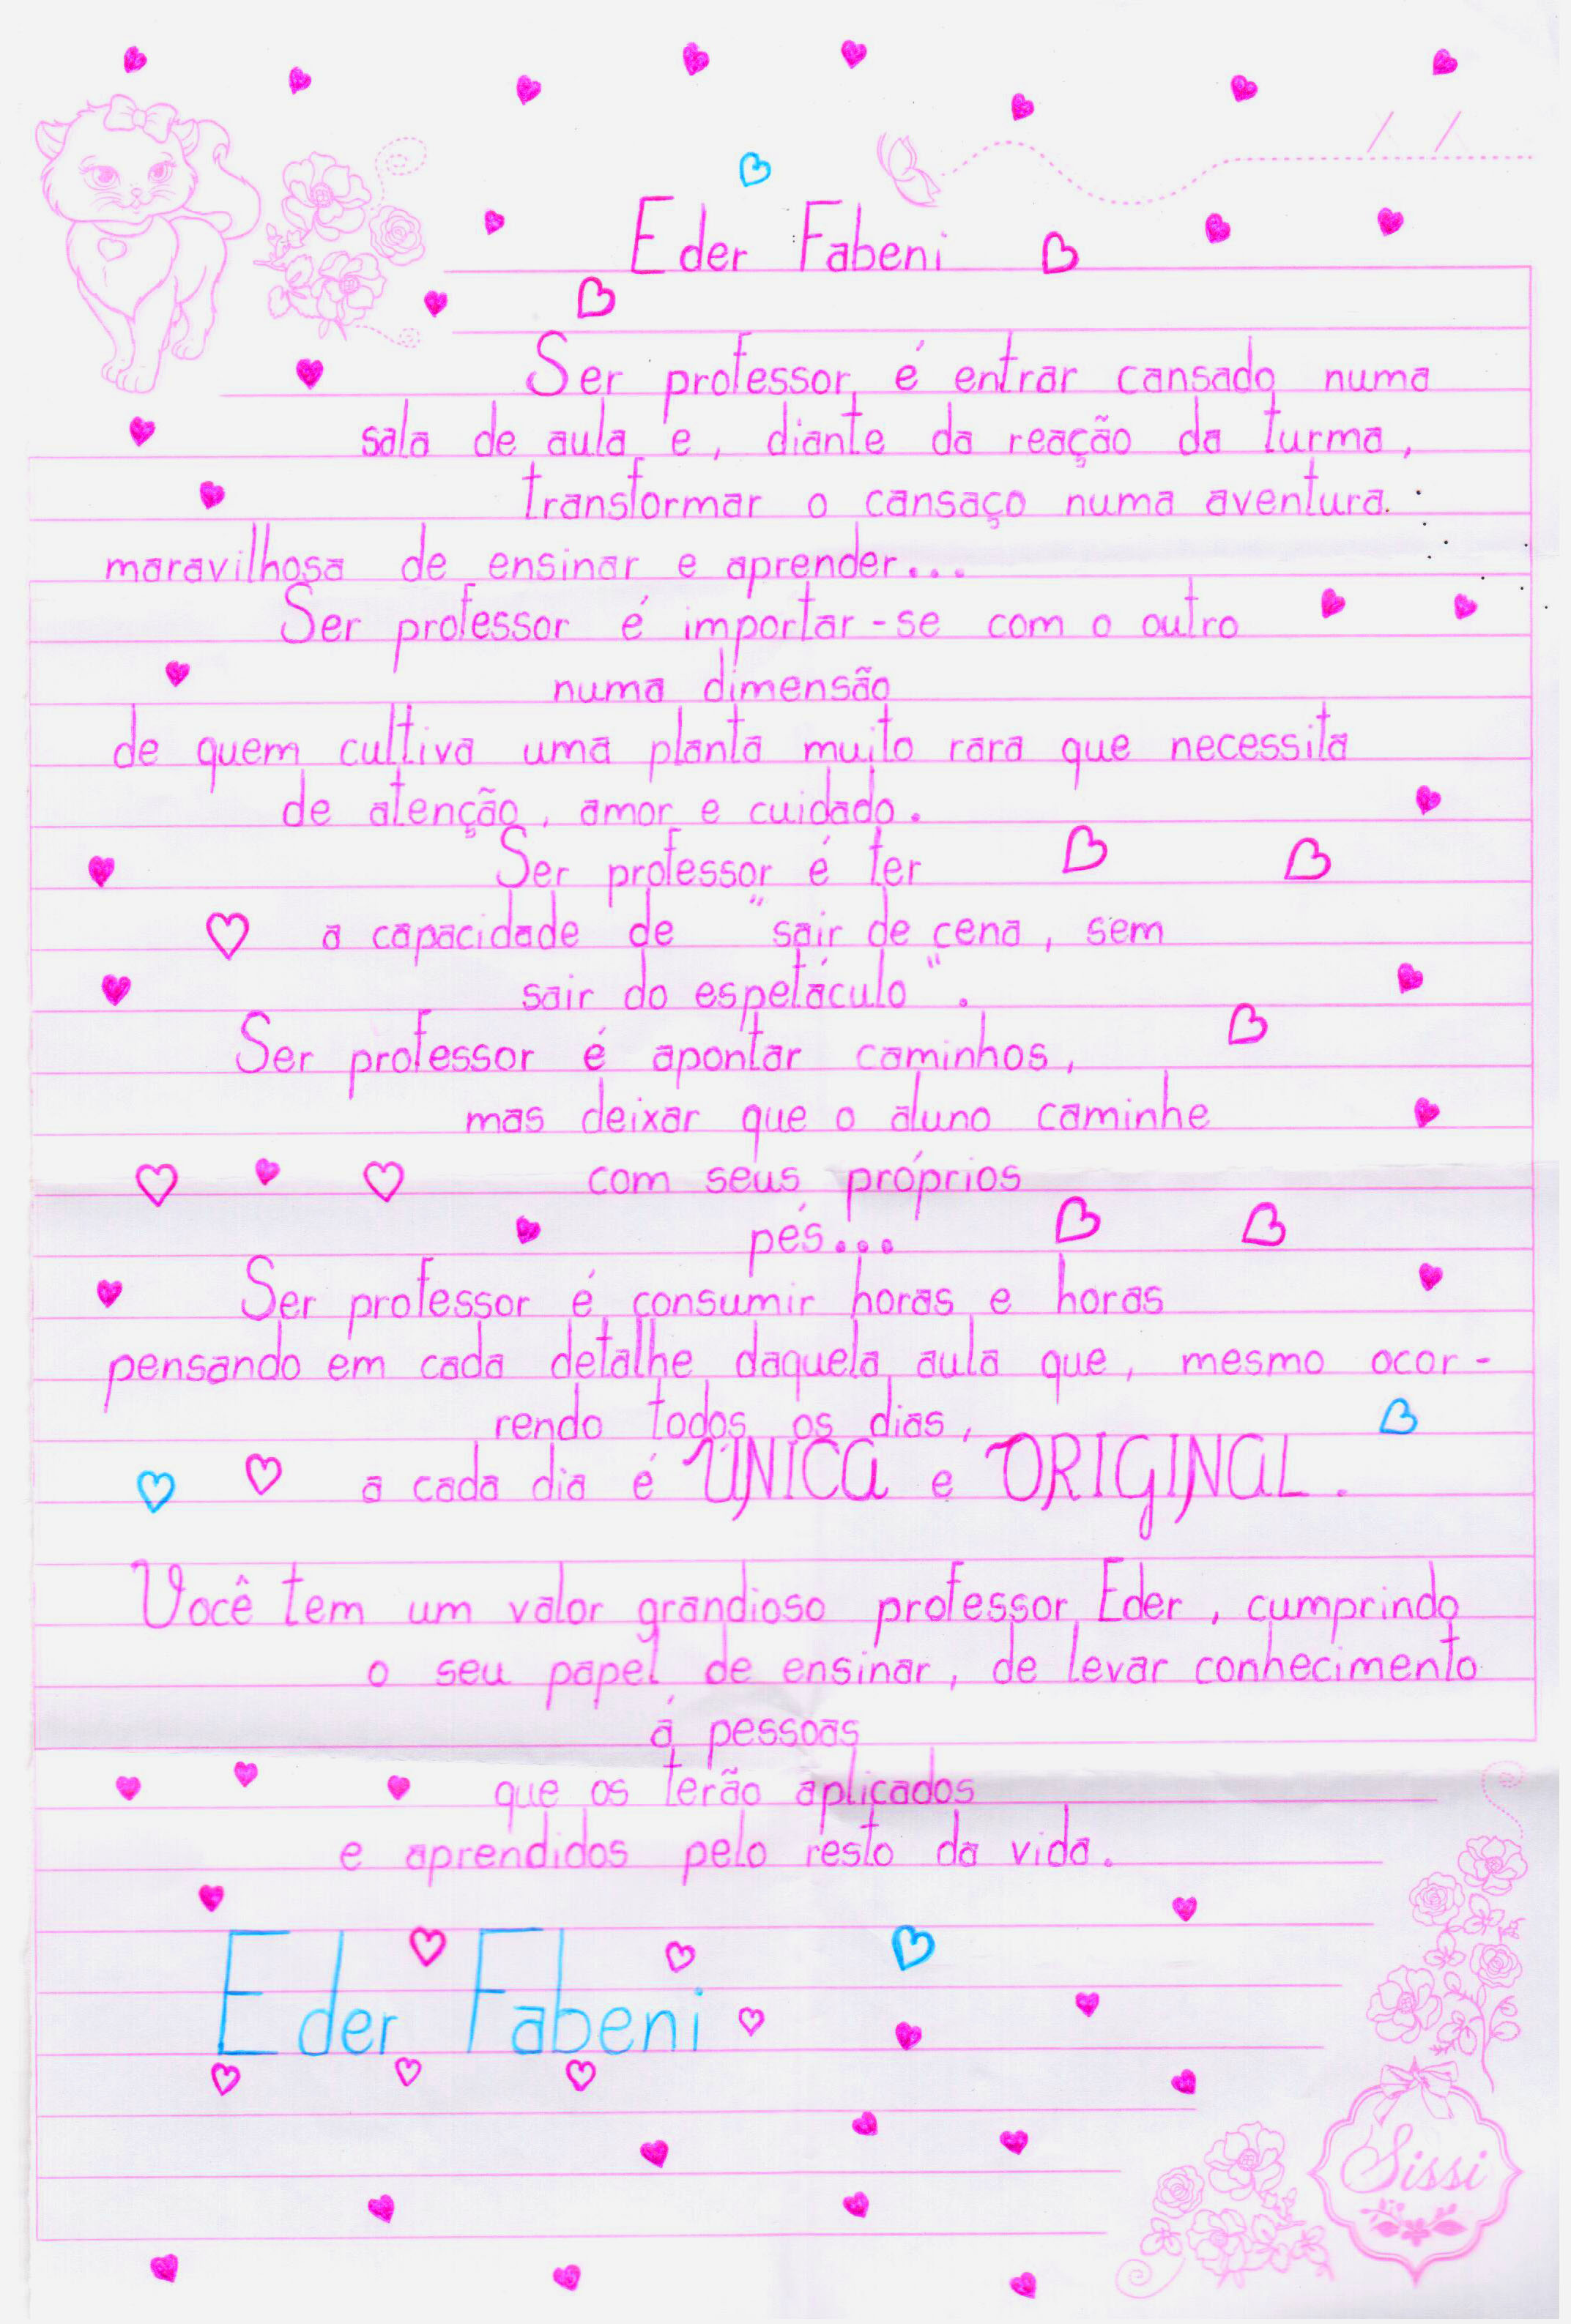 Eder Fabeni
Ser professor é entrar cansado numa
sala de aula e, diante da reação da turma,
transformar o cansaço numa aventura
maravilhosa de ensinar e aprender...
Ser professor é importar-se com o outro
numa dimensão
de quem cultiva uma planta muito rara que necessita
de atenção, amor e cuidado.
Ser professor é ter
a capacidade de "sair de cena, sem
sair do espetáculo".
Ser professor é apontar caminhos,
mas deixar que o aluno caminhe
com seus próprios
pés...
Ser professor é consumir horas e horas
pensando em cada detalhe daquela aula que, mesmo ocor-
rendo todos os dias,
a cada dia é ÚNICA e ORIGINAL.
Você tem um valor grandioso professor Eder, cumprindo
o seu papel de ensinar, de levar conhecimento
á pessoas
que os terão aplicados
e aprendidos pelo resto da vida.
Eder Fabeni
Sissi